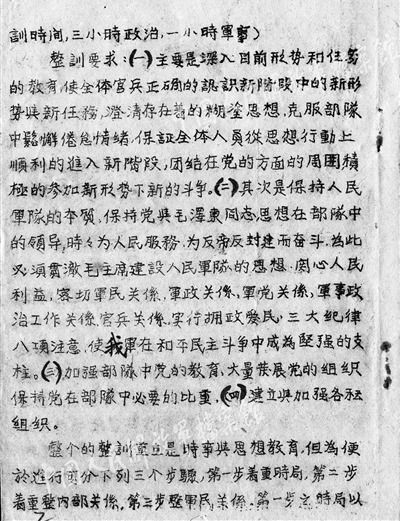 訓時间,三小時政治,一小時軍事)
整訓要求:(一)主要是深入目前形势和任务
的教育,使全体官兵正确的認识新階段中的新形
势與新任務,澄清存在着的糊塗思想,克服部隊
中鬆懈倦怠情绪,保証全体人員從思想行動上
順利的進入新階段,团结在党的方面的周圍積
極的参加新形势下新的斗争。(二)其次是保持人民
軍隊的本質,保持党與毛澤東同志思想在部隊中
的领导,時々为人民服務,为反帝反封建而奋斗,为此
必須貫澈毛主席建設人民軍隊的思想,関心人民
利益,密切軍民关係,軍政关係,軍党关係,軍事政
治工作关係,官兵关係,实行拥政爱民,三大纪律
八項注意,使我軍在和平民主斗争中成為堅强的支
柱。(三)加强部隊中党的教育,大量发展党的组织
保持党在部隊中必要的比重,(四)建立與加强各种
组织。
整个的整訓是時事與思想教育,但为便
於進行可分下列三个步驟,第一步着重時局,第二步
着重整内部关係,第三步整軍民关係,第一步之時局以